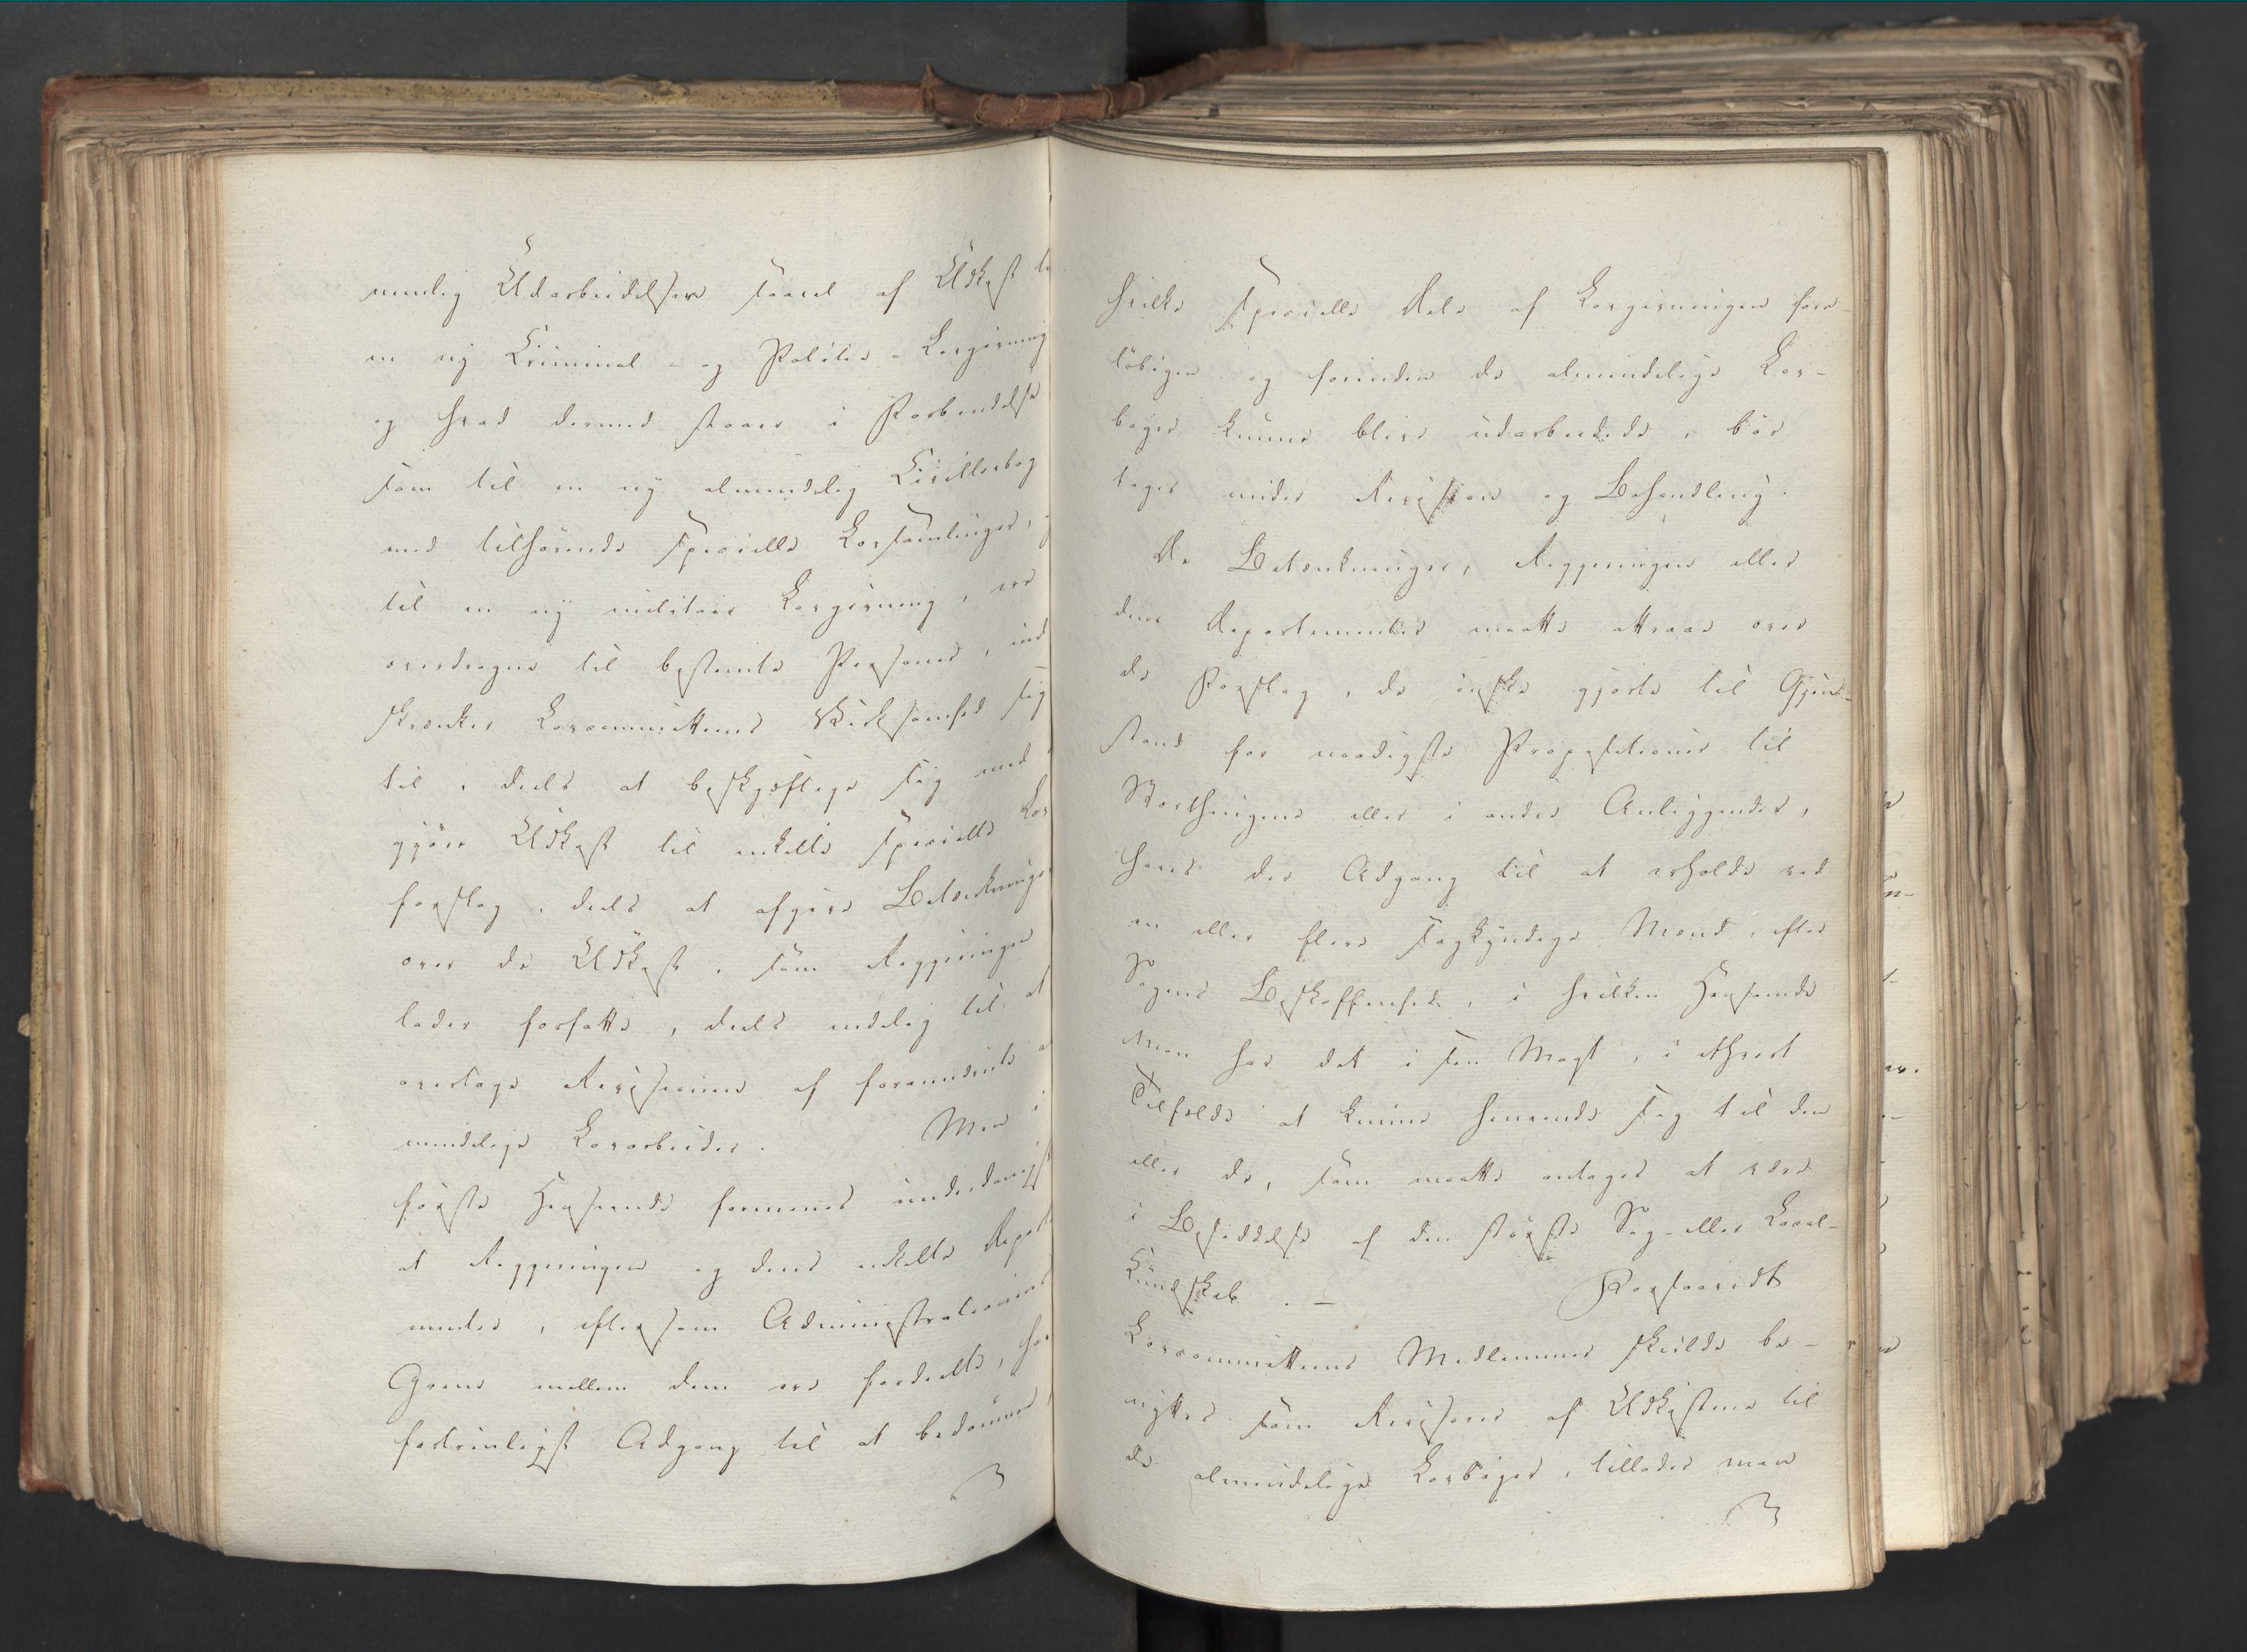 nemlig Udarbeidelsen saavel af Udkast
en ny Criminal- og Politie-Lovgivning
og hvad dermed staaer i Forbindelse
som til en ny almindelig Civillovbog
med tilhørende specielle Lovsamlinger,
til en ny militair Lovgivning, ere
overdragne til bestemte Personer, ind
skrænker Lovcommitteens Virksomhed sig
til, deels at beskjæftige sig med
gjøre Udkast til enkelte specielle Lov
forslag, deels at afgive Betænkninger
over de Udkast, som Regjeringen
lader forfatte, deels endelig til at
overtage Revisionen af forommeldte
mindelige Lovarbeider. Men i
første Henseende formenes underdanigst
at Regjeringen og dens enkelte Depart
menter, eftersom Administrationens
Grene mellem dem ere fordeelte, har
fortrinligst Adgang til at bedømme,
hvilke specielle Dele af Lovgivningen fore-
løbigen og forinden de almindelige Lov-
bøger kunne blive udarbeidede, bør
tages under Revision og Behandling.
De Betænkninger, Regjeringen eller
dens Departementer maatte attraae over
de Forslag, de ønske gjorte til Gjen-
stand for naadigste Propositioner til
Storthingene eller i andre Anliggender,
haves der Adgang til at erholde ved
en eller flere sagkyndige Mænd, efter
Sagens Beskaffenhed, i hvilken Henseende
man har det i sin Magt, i ethvert
Tilfælde at kunne henvende sig til den
eller de, som maatte antages at være
i Besiddelse af den største Sag- eller Local-
Kundskab. — Forsaavidt
Lovcommitteens Medlemmer skulde be-
nyttes som Revisorer af Udkastene til
de almindelige Lovbøger, tillader man